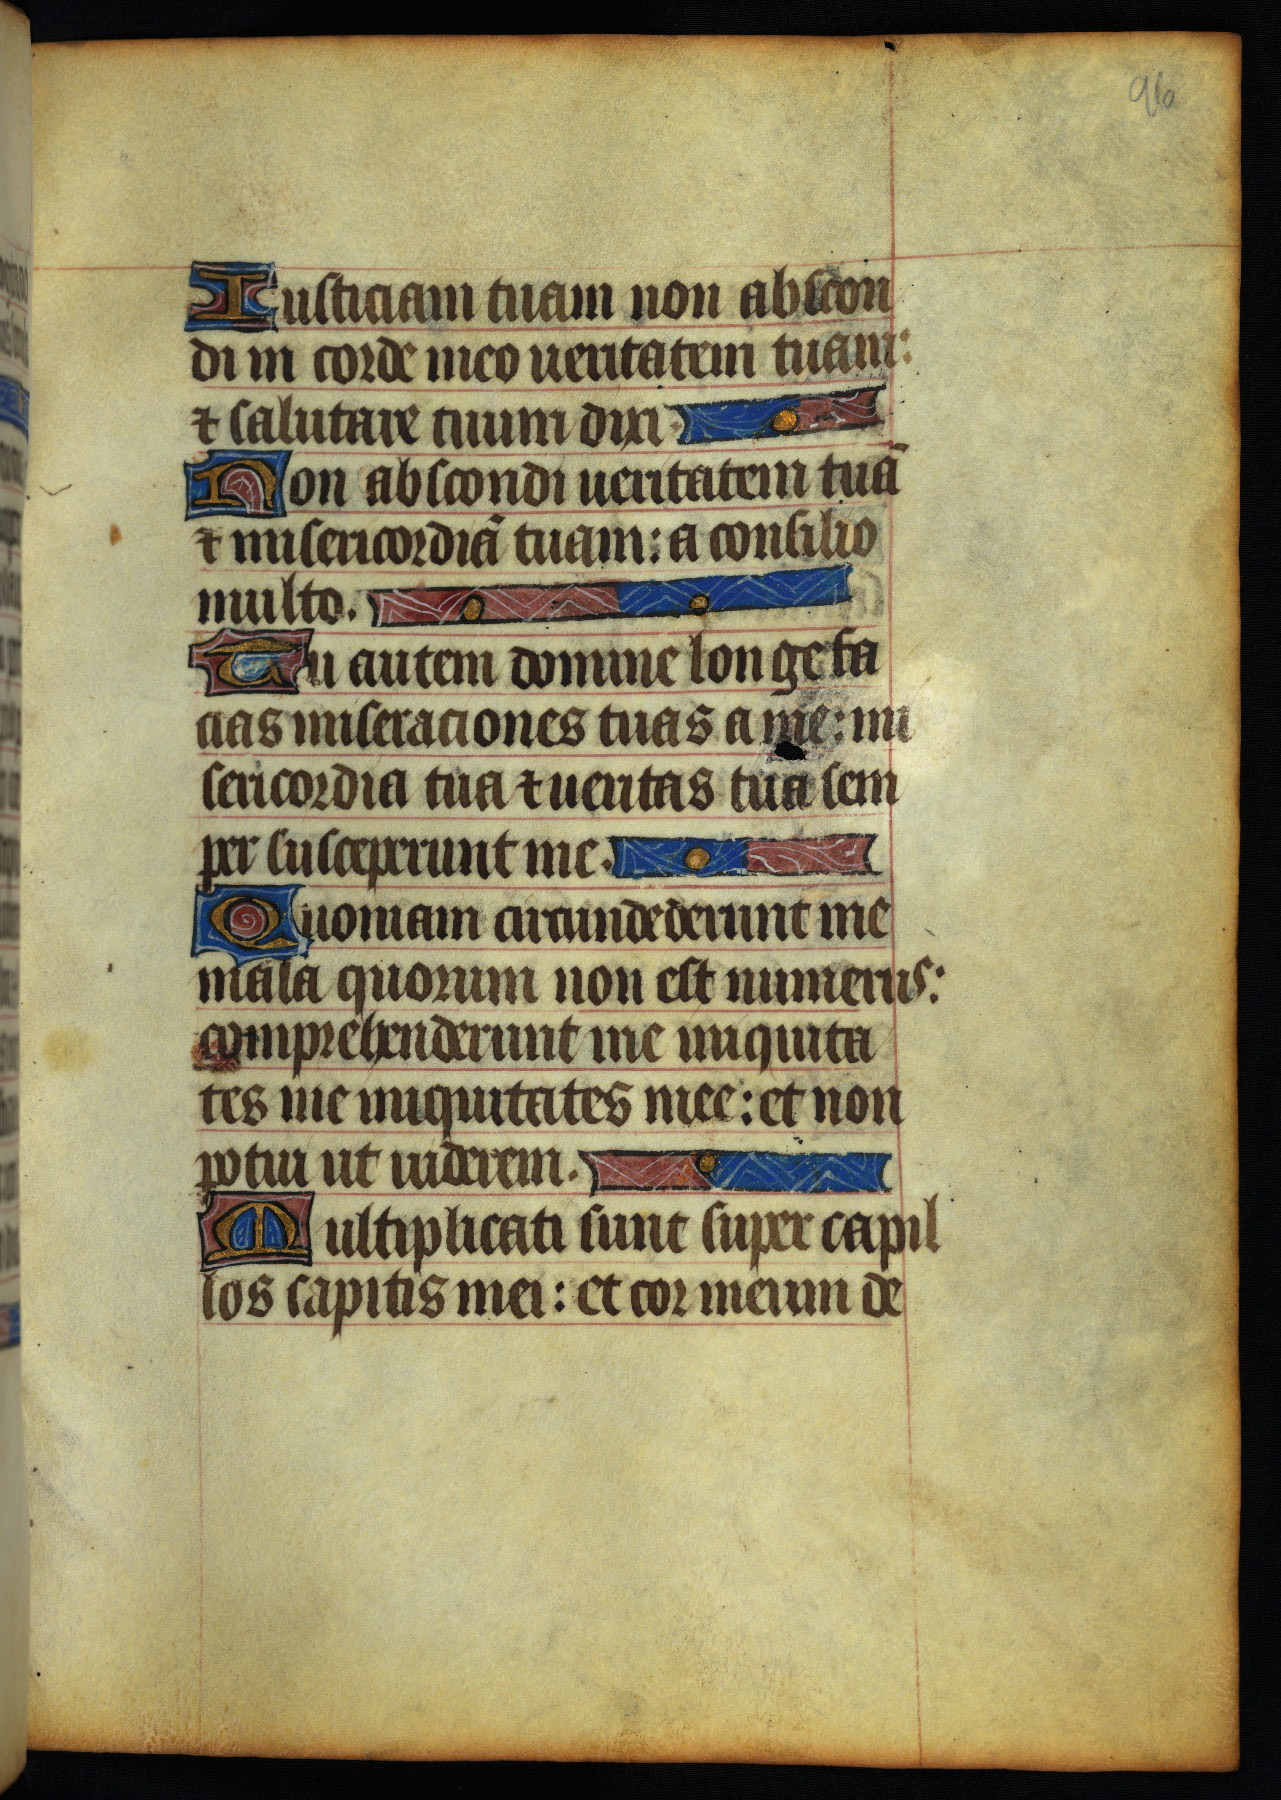 96
Iusticiam tuam non abscon
di in corde meo ueritatem tuam:
⁊ salutare tuum dixi.
Non abscondi ueritatem tuā
⁊ misericordiā tuam: a consilio
multo.
Tu autem domine longe fa
cias miseraciones tuas a me: mi
sericordia tua ⁊ ueritas tua sem
per susceperunt me.
Quoniam circundederunt me
mala quorum non est numerus:
comprehenderunt me iniquita
tes me iniquitates mee: et non
potui ut uiderem.
Multiplicati sunt super capil
los capitis mei: et cor meum de